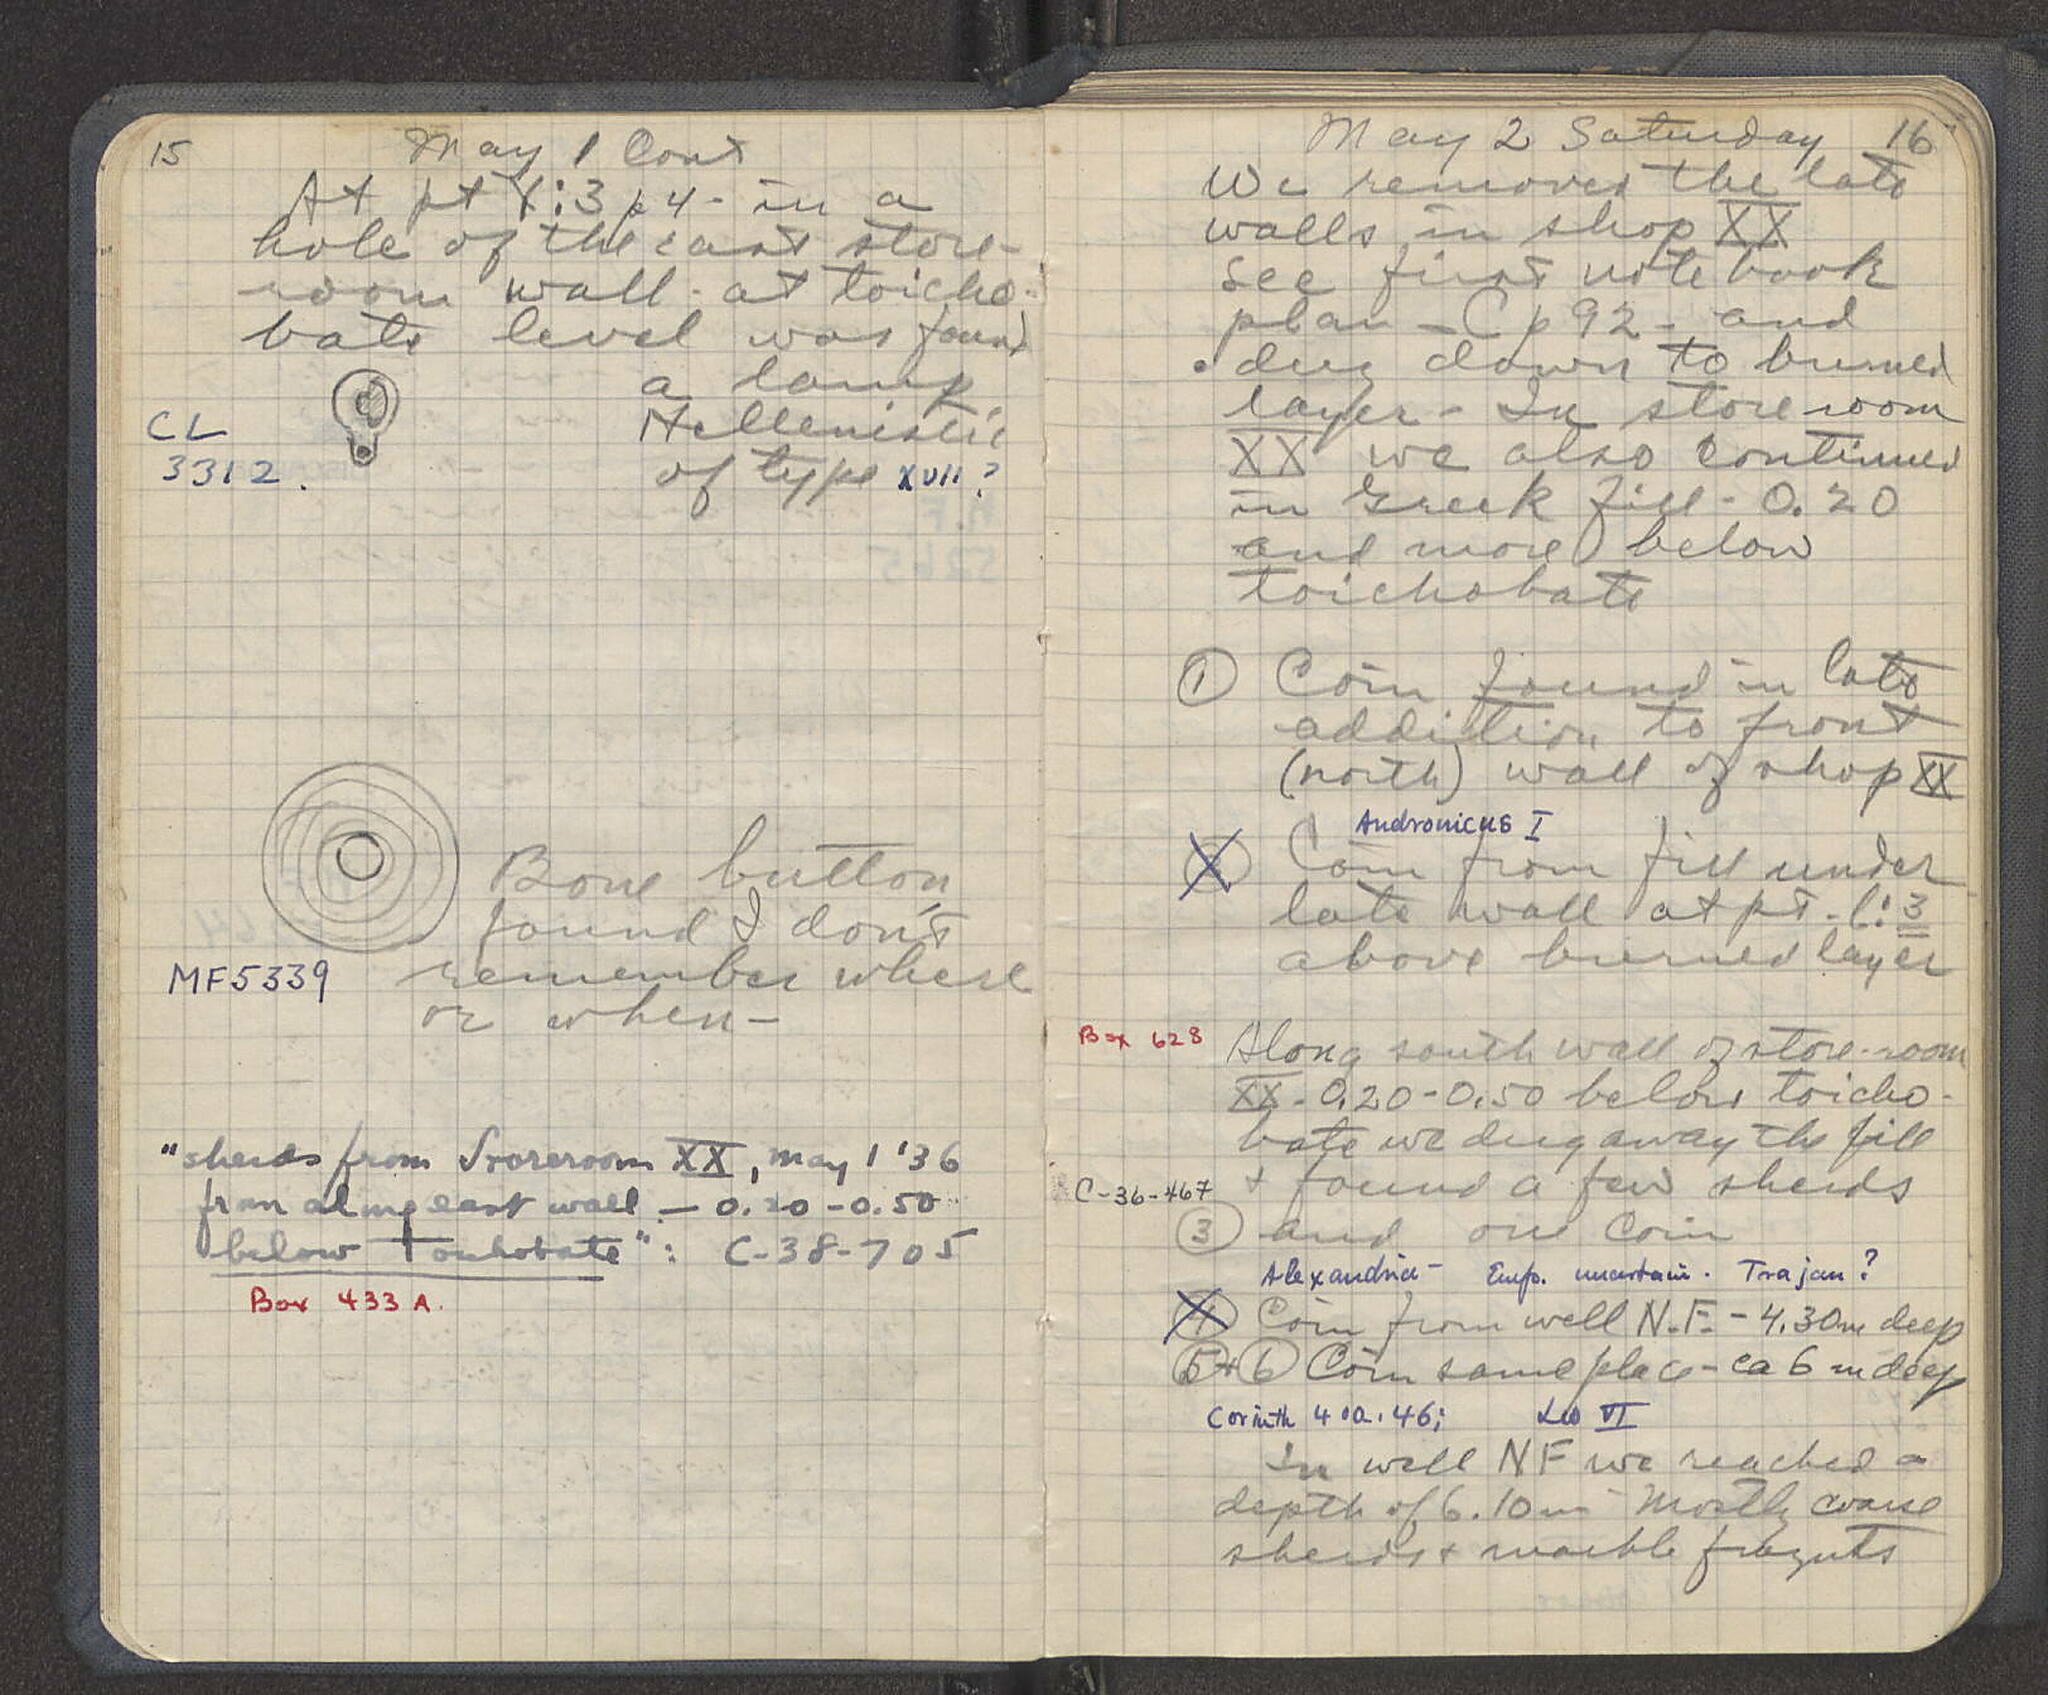 15
May 1 Cont
At pt Y:3 p4 - in a
hole of the east store-
room wall - at toicho-
bate level was found
a lamp
Hellenistic
of type XVII ?
CL
3312.
Bone button
found I don't
remember where
or when -
MF5339
"sherds from Storeroom XX, May 1 '36
from along east wall - 0.20 - 0.50
below Toichobate" : C-38-705
Box 433 A.
May 2 Saturday 16
We removed the late
walls in shop XX
see first note book
plan - C p 92 - and
dug down to burned
layer - In store room
XX we also continued
in Greek fill - 0.20
and more below
toichobate
1 Coin found in late
addition to front
(north) wall of shop XX
Andronicus I
Coin from fill under
late wall at pt. :3
above burned layer
Box 628
Along south wall of store-room
XX - 0.20-0.50 below toicho-
bate we dug away the fill
C-36-467 + found a few sherds
3 and one coin
Alexandria - Emp. uncertain. Trajan?
4 Coin from well N.F. - 4.30m deep
5+6 Coin same place - ca 6 m deep
Corinth 40a.46; Leo VI
In well NF we reached a
depth of 6.10m Mostly coarse
sherds + marble fragmts